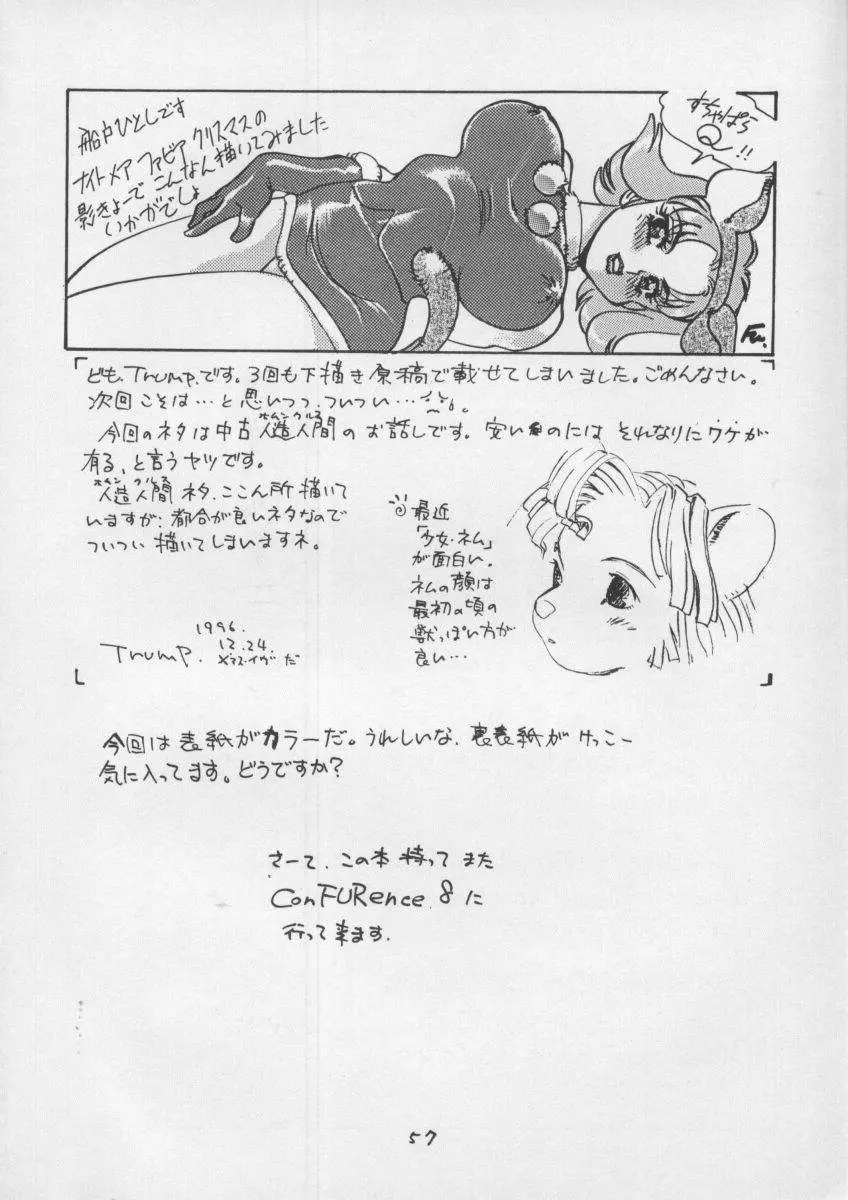 船戸ひとしです
ナイトメア ファビア クリスマスの
影きょーで こんなん描いてみました
いかがでしょ
すちゃぱら
Q!!
Fu.
「ども、Trump.です。3回も下描き原稿で載せてしまいました。ごめんなさい。
次回こそは…と思いつつ、ついつい…
ホムンクルス
今回のネタは中古人造人間のお話しです。安いものには それなりにワケが
有る、と言うヤツです。
ホムンクルス
人造人間ネタ、ここん所描いて
いますが、都合が良いネタなので
ついつい描いてしまいますネ。
最近
「少女・ネム」
が面白い。
ネムの顔は
最初の頃の
獣っぽい方が
良い…
1996.
12.24.
Trump. X'マス・イヴだ
」
今回は表紙がカラーだ。うれしいな、裏表紙がけっこー
気に入ってます。どうですか?
さーて、この本持ってまた
ConFURence 8に
行って来ます.
57